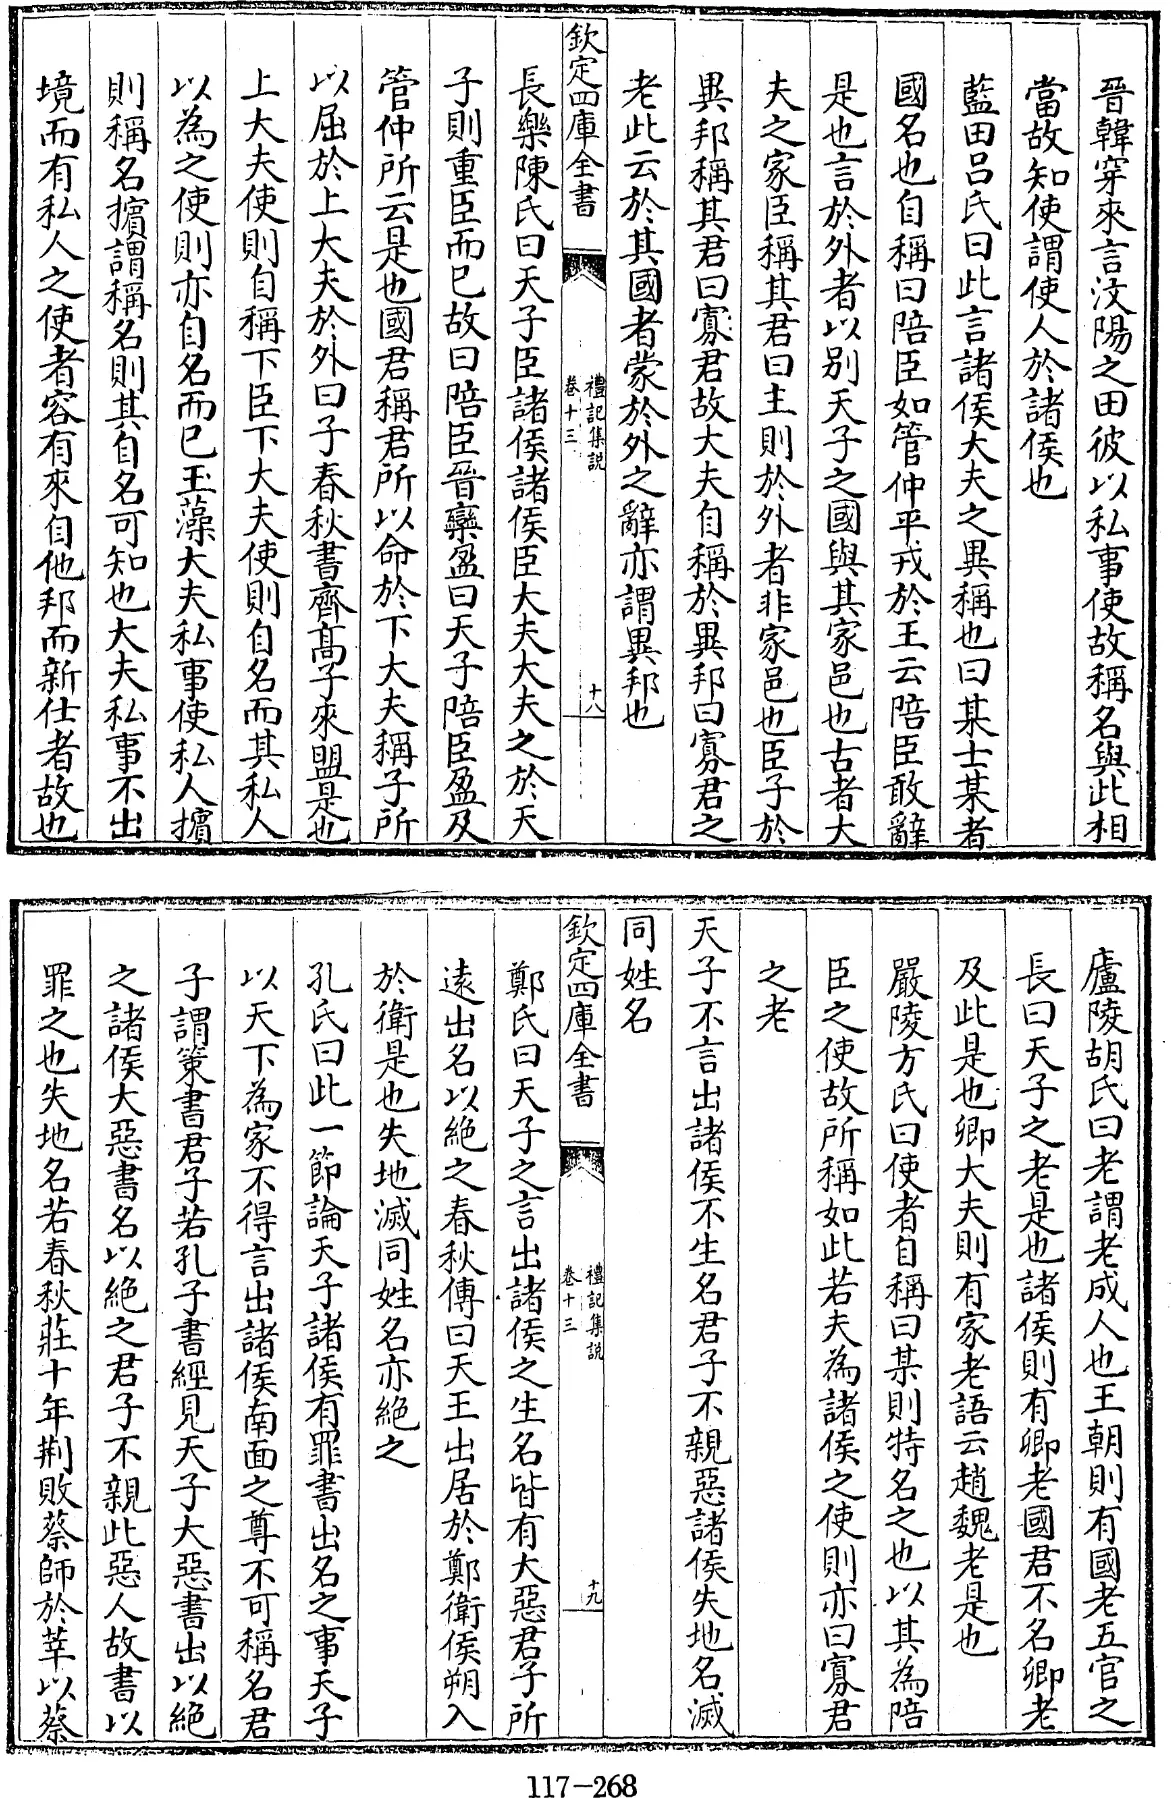 晉韓穿來言汶陽之田彼以私事使故稱名與此相
當故知使謂使人於諸侯也
藍田呂氏曰此言諸侯大夫之異稱也曰某士某者
國名也自稱曰陪臣如管仲平戎於王云陪臣敢辭
是也言於外者以别天子之國與其家邑也古者大
夫之家臣稱其君曰主則於外者非家邑也臣子於
異邦稱其君曰寡君故大夫自稱於異邦曰寡君之
老此云於其國者蒙於外之辭亦謂異邦也
欽定四庫全書
禮記集説
卷十三
十八
長樂陳氏曰天子臣諸侯諸侯臣大夫大夫之於天
子則重臣而已故曰陪臣晉欒盈曰天子陪臣盈及
管仲所云是也國君稱君所以命於下大夫稱子所
以屈於上大夫於外曰子春秋書齊髙子來盟是也
上大夫使則自稱下臣下大夫使則自名而其私人
以為之使則亦自名而已玉藻大夫私事使私人擯
則稱名擯謂稱名則其自名可知也大夫私事不出
境而有私人之使者容有來自他邦而新仕者故也
廬陵胡氏曰老謂老成人也王朝則有國老五官之
長曰天子之老是也諸侯則有卿老國君不名卿老
及此是也卿大夫則有家老語云趙魏老是也
嚴陵方氏曰使者自稱曰某則特名之也以其為陪
臣之使故所稱如此若夫為諸侯之使則亦曰寡君
之老
天子不言出諸侯不生名君子不親惡諸侯失地名滅
同姓名
欽定四庫全書
禮記集説
卷十三
十九
鄭氏曰天子之言出諸侯之生名皆有大惡君子所
逺出名以絶之春秋傳曰天王出居於鄭衛侯朔入
於衛是也失地滅同姓名亦絶之
孔氏曰此一節論天子諸侯有罪書出名之事天子
以天下為家不得言出諸侯南面之尊不可稱名君
子謂策書君子若孔子書經見天子大惡書出以絶
之諸侯大惡書名以絶之君子不親此惡人故書以
罪之也失地名若春秋莊十年荆敗蔡師於莘以蔡
117-268